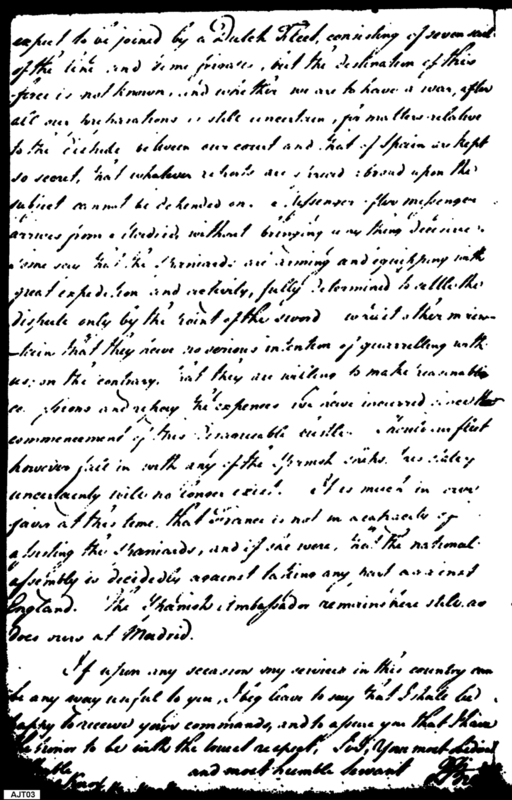 expect to be joined by a Dutch Fleet, consisting of seven sail
of the line and some frigates, but the destination of this
force is not known, and whether we are to have a war, after
all our preparations is still uncertain, for matters relative
to the dispute between our court and that of Spain are kept
so secret, that whatever reports are spread abroad upon the
subject cannot be depended on. a Messenger after messenger
arrives from Madrid, without bringing any thing decisive.
Some say that the Spaniards are arming and equipping with
great expedition and activity, fully determined to settle the
dispute only by the point of the sword whilst others main-
-tain that they have no serious intention of quarrelling with
us; on the contrary, that they are willing to make reasonable
and repay the expenses we have incurred since the
commencement of this bustle. Should our fleet
however fall in with any of the Spanish this
uncertainty will no longer exist. It is much in our
favor at this time, that France is not in a capacity of
assisting the Spaniards, and if she were, that the national
assembly is decidedly against taking any part against
England. The Spanish Ambassador remains here still, as
does ours at Madrid.
If upon any occasion my services in this country can
be any way useful to you, I beg leave to say that I shall be
happy to receive your commands, and to assure you that I have
the honor to be with the utmost respect, Sir, Your most obedient
and most humble Servant
Knox
AJT03